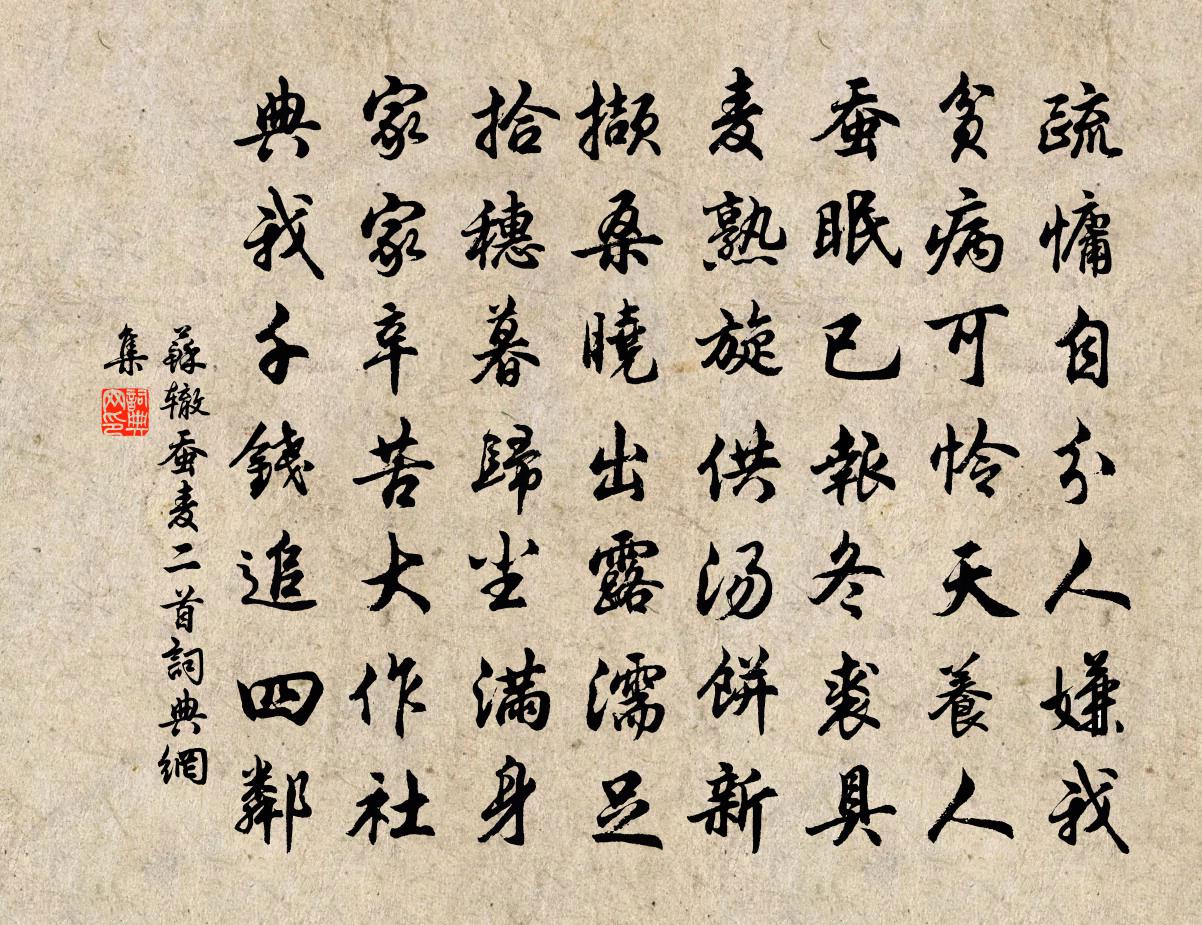 疏慵自分人嫌我
貧病可怜天養人
蚕眠已報冬裘具
麦熟旋供汤餅新
擷桑曉出露濡足
拾穗暮歸尘满身
家家辛苦大作社
典我千錢追四鄰
蘇辙蚕麦二首詞典網
集
詞典
网印